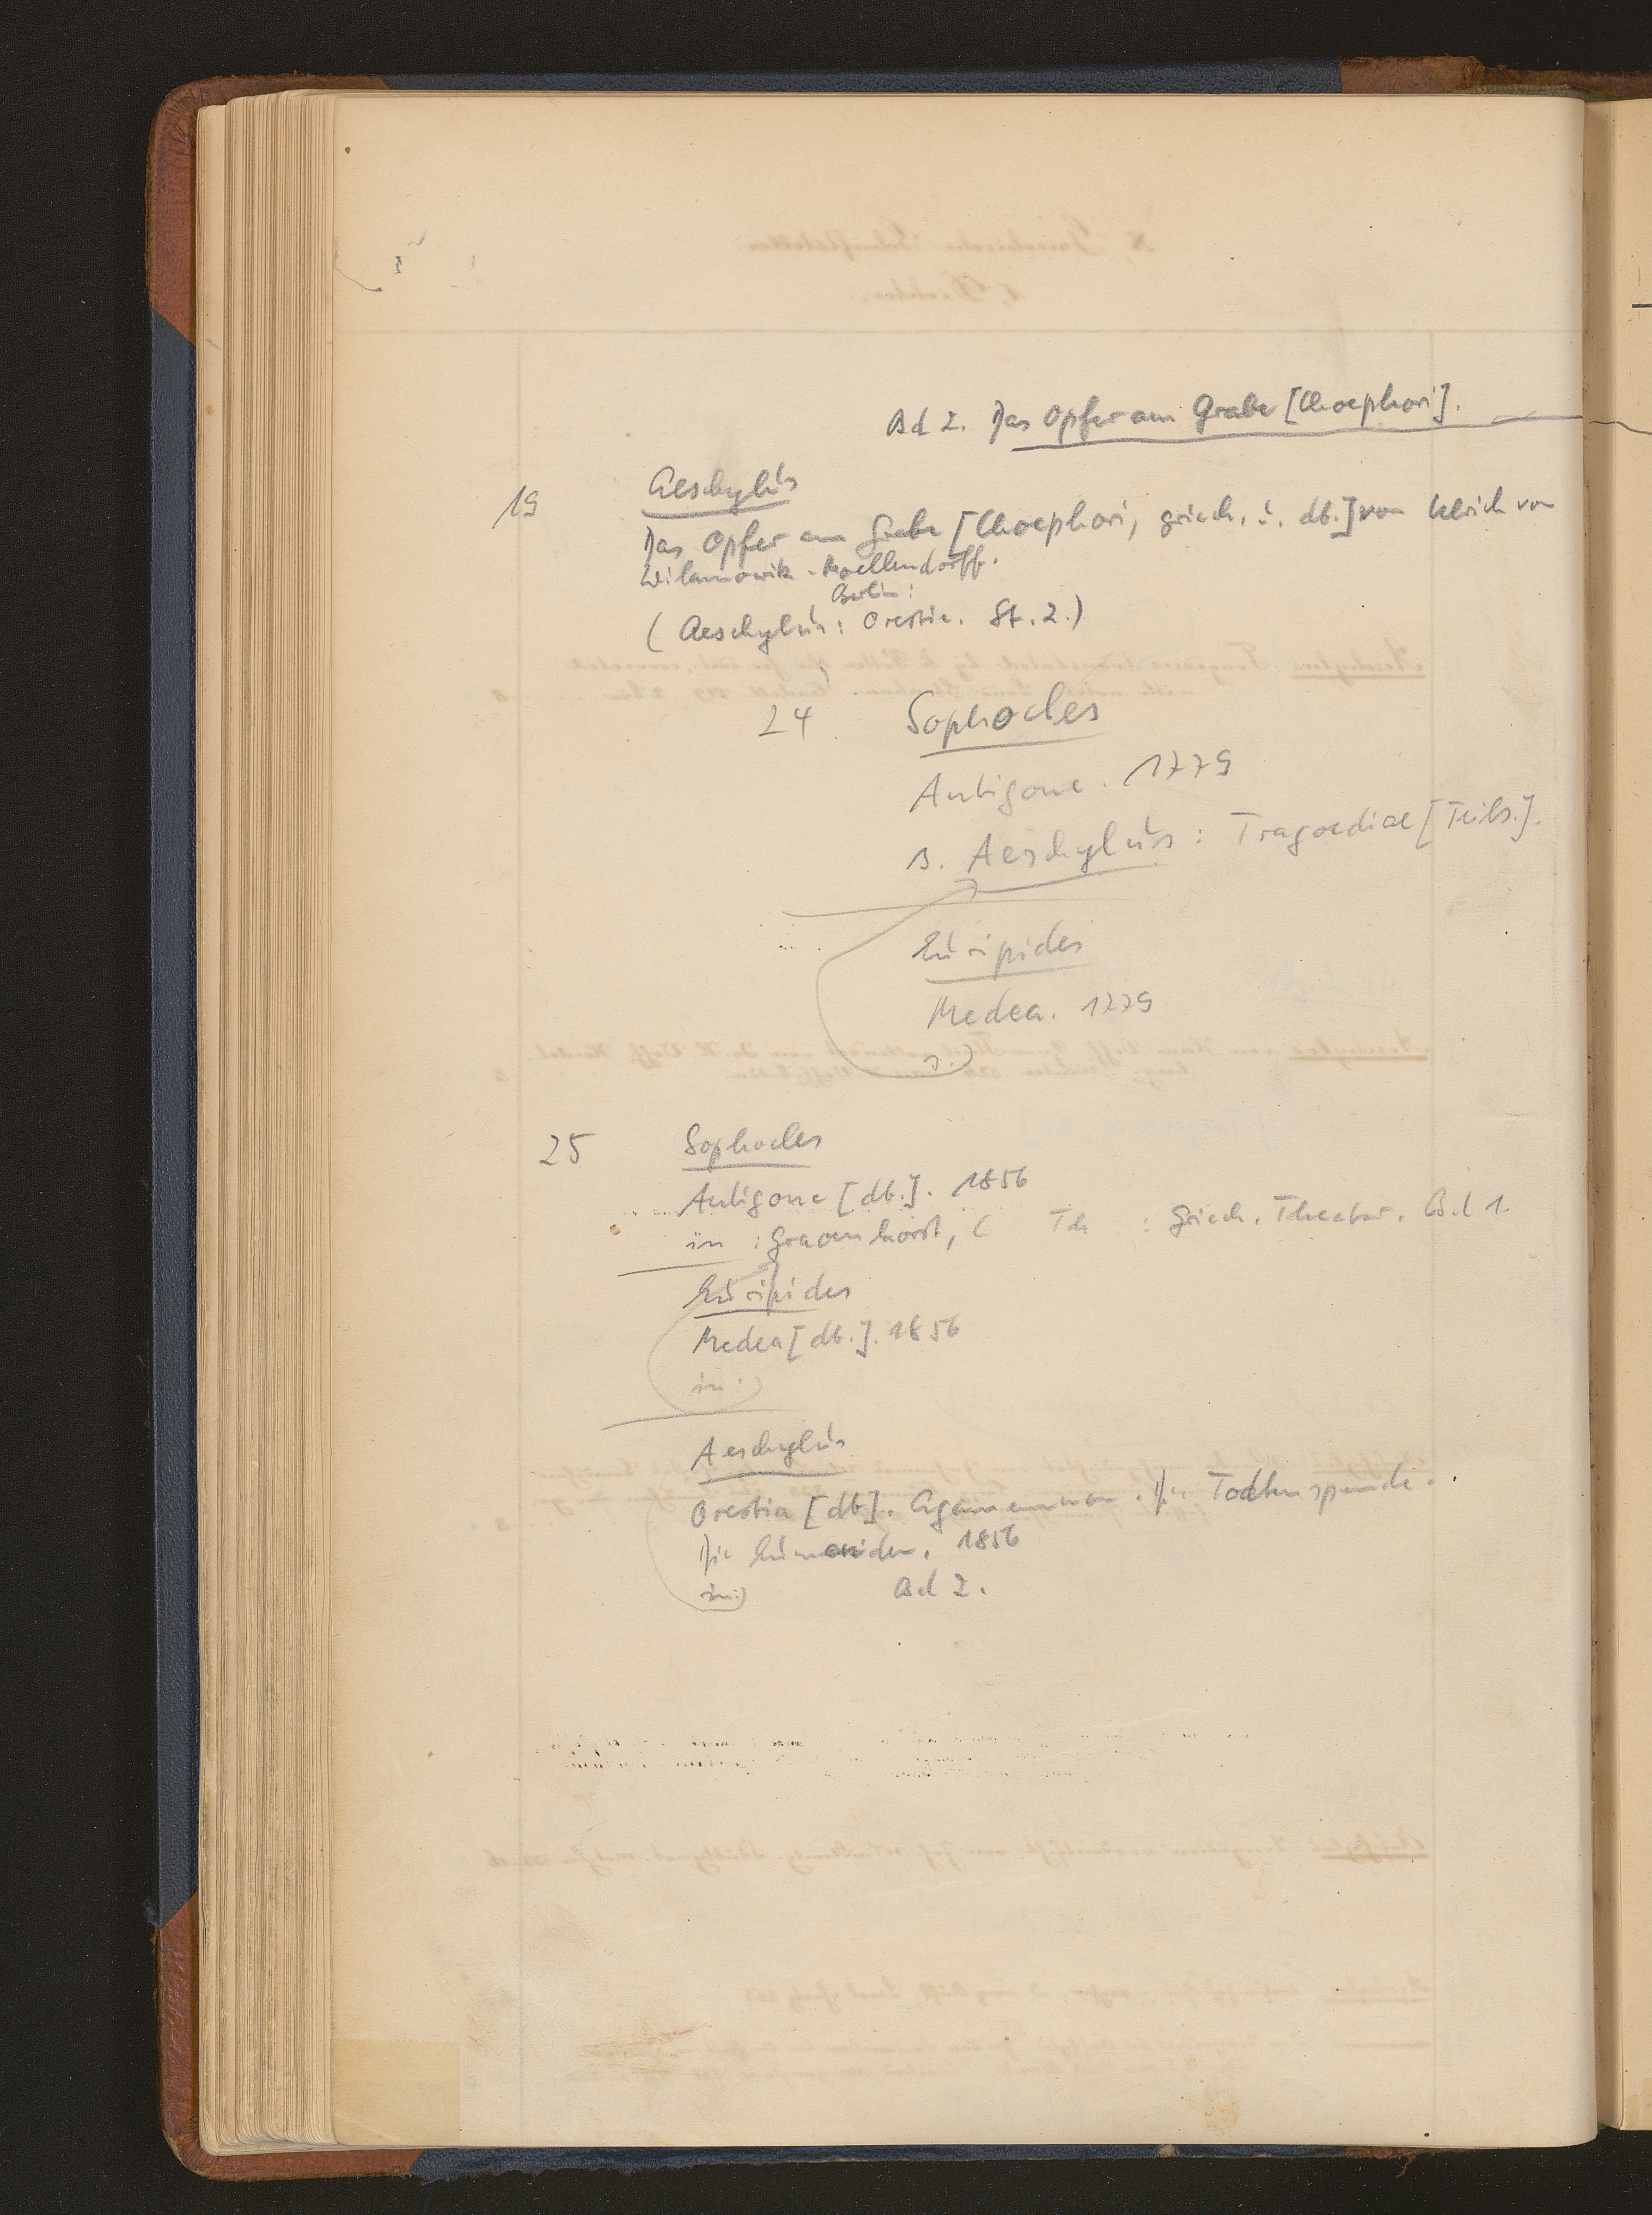 Bd 2. Das Opfer am Grabe [Choephori].
19 Aeschylus
Das Opfer am Grabe [Choephori, griech. u. dt.] von Ulrich von
Wilamowitz-Moellendorff.
Berlin:
(Aeschylus: Orestie. St. 2.)
24 Sophocles
Antigone. 1779
s. Aeschylus: Tragoediae [Teils.].
Euripides
Medea. 1779
s.)
25 Sophocles
Antigone [dt.]. 1856
in: Gravenhorst, C Th : Griech. Theater. Bd 1.
Euripides
Medea [dt.]. 1856
in:)
Aeschylus
Orestia [dt]. Agamemnon. Die Todtenspende.
Die Eumeniden. 1856
in:) Bd 2.